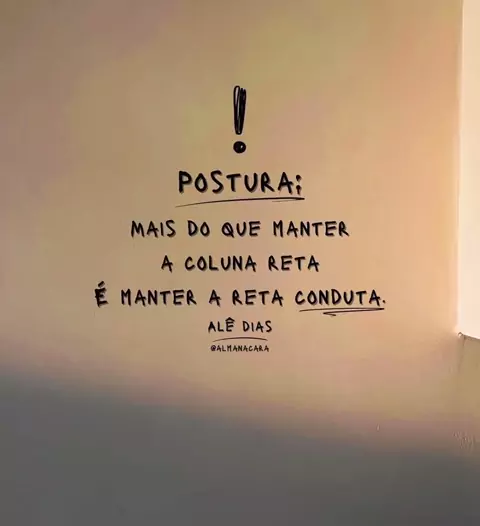 !
POSTURA;
MAIS DO QUE MANTER
A COLUNA RETA
É MANTER A RETA CONDUTA.
ALÊ DIAS
@ALMANACARA